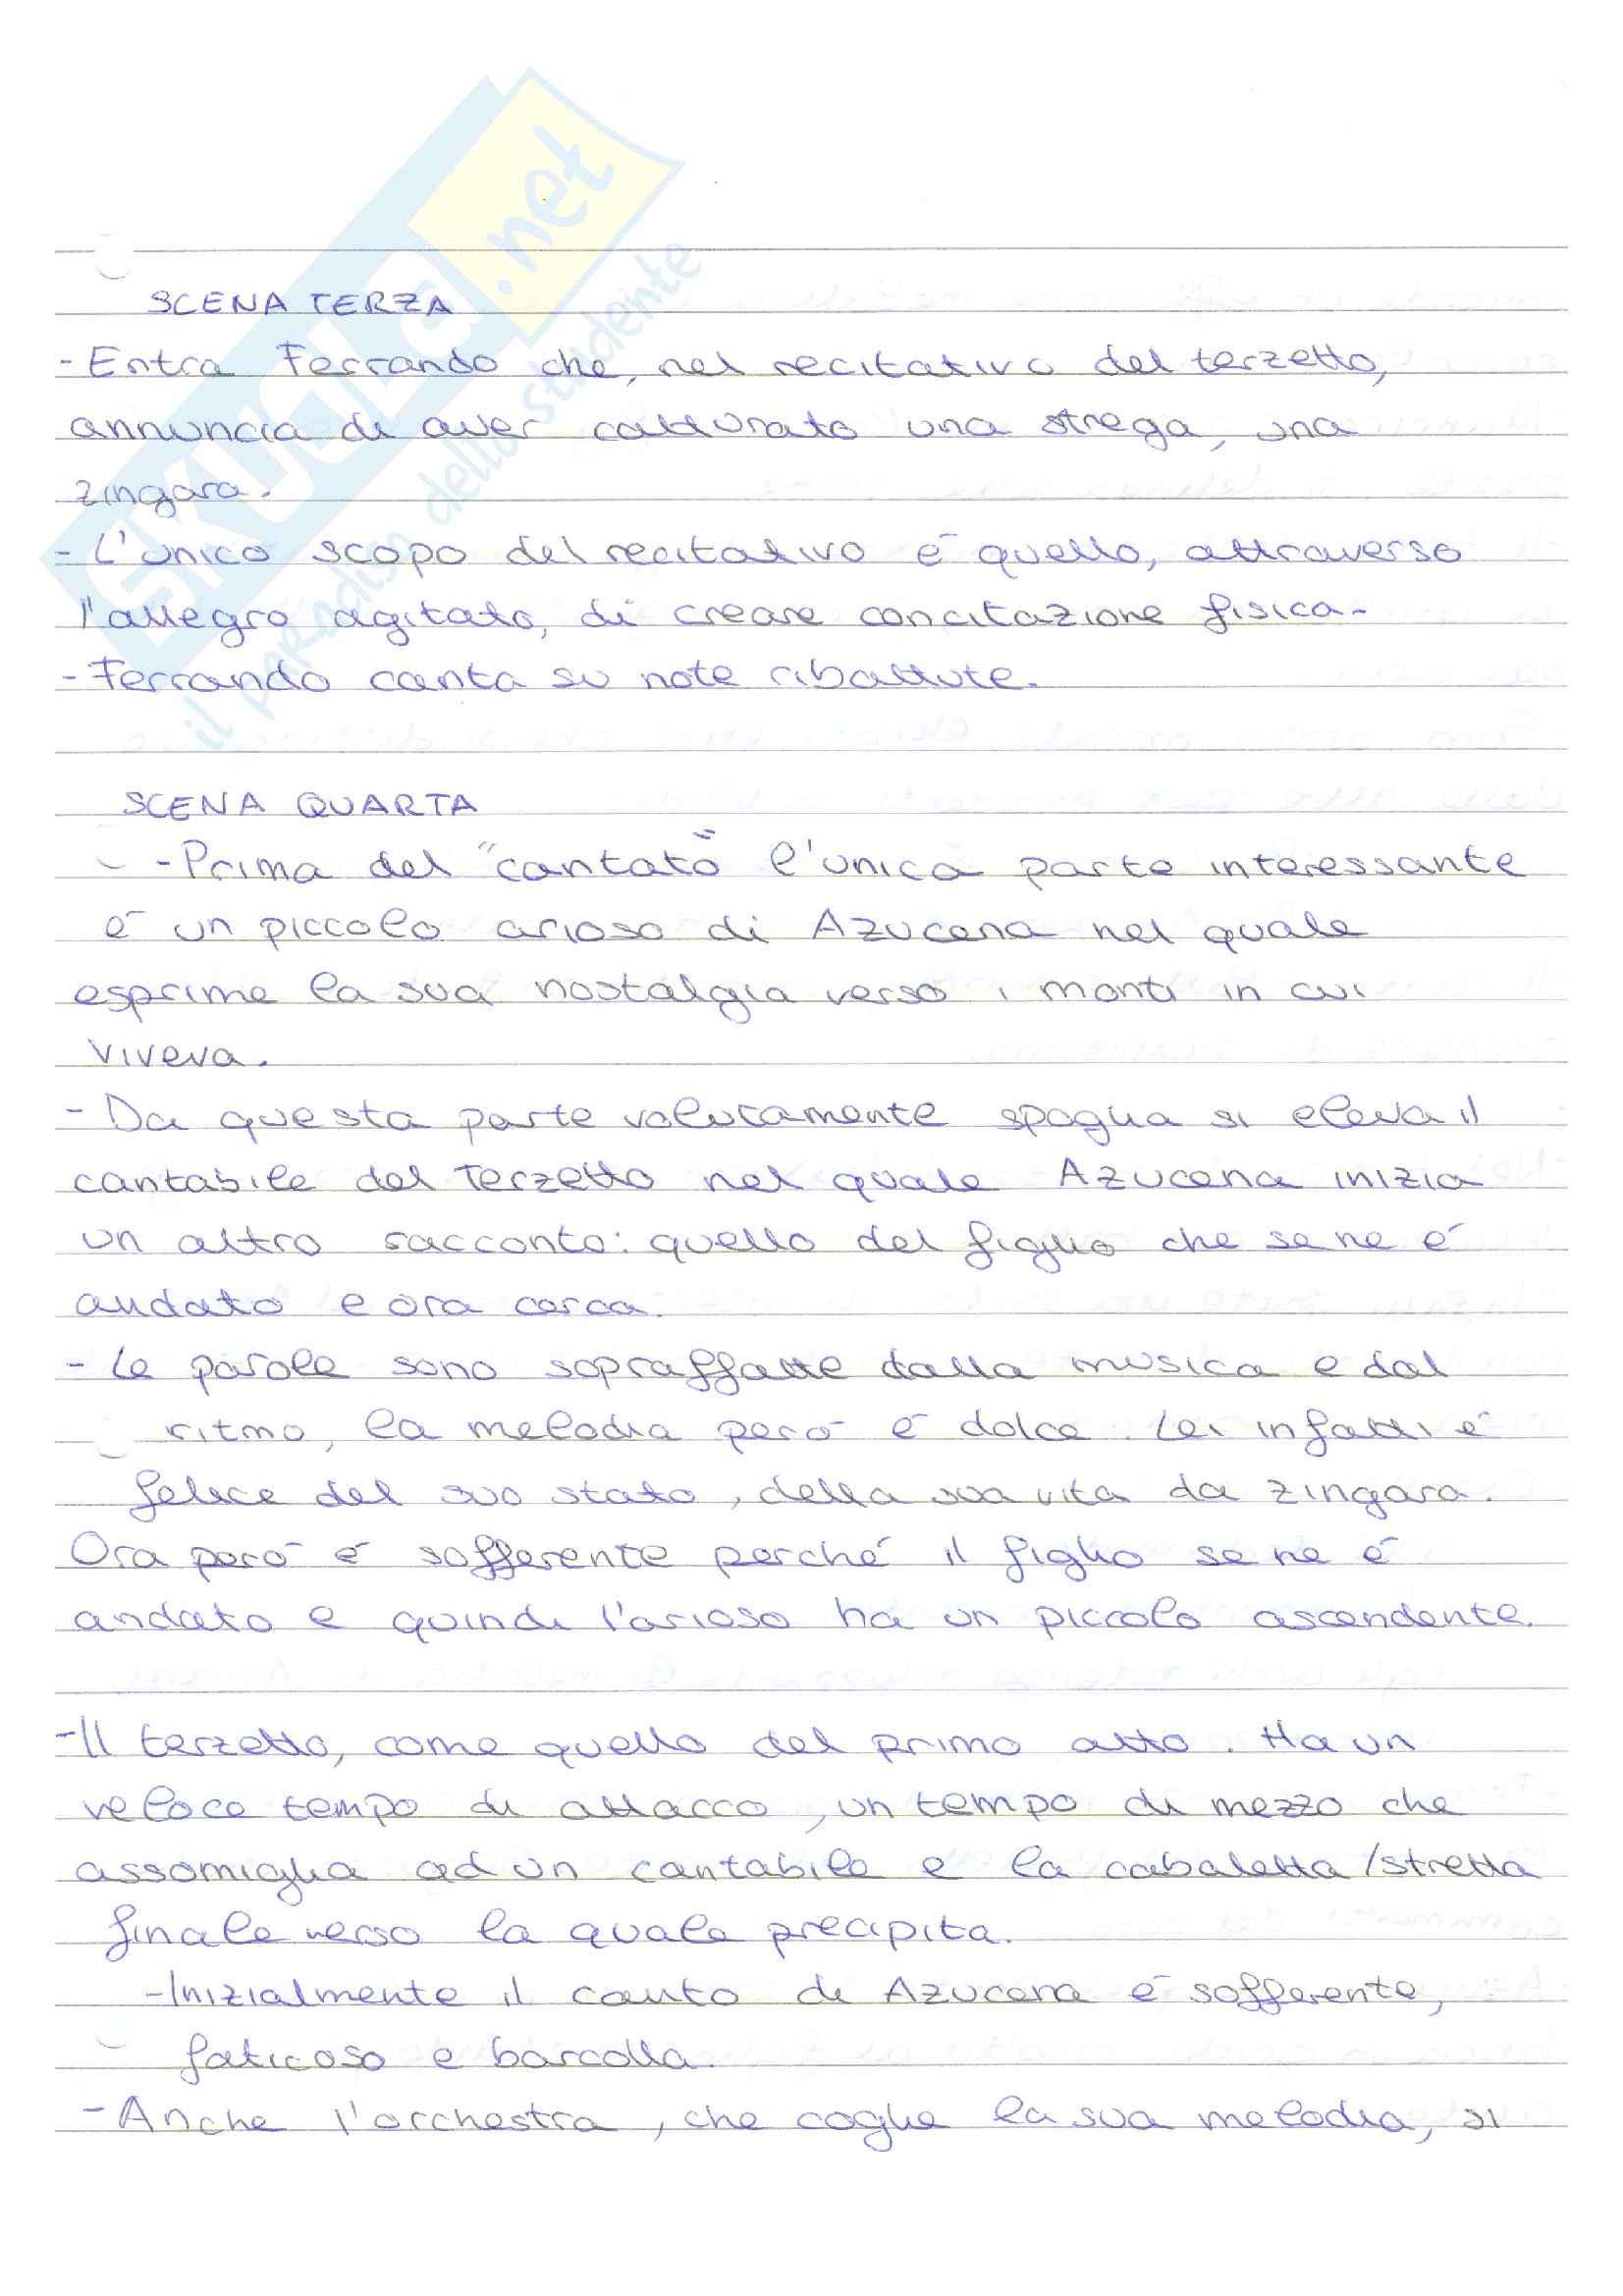 SKUOLA.net
il paradiso dello studente
SCENA TERZA
- Entra Ferrando che, nel recitativo del terzetto,
annuncia di aver catturato una strega, una
zingara.
- L'unico scopo del recitativo é quello, attraverso
l'allegro agitato, di creare concitazione fisica.
- Ferrando canta su note ribattute.
SCENA QUARTA
- Prima del "cantato" l'unica parte interessante
é un piccolo arioso di Azucena nel quale
esprime la sua nostalgia verso i monti in cui
viveva.
- Da questa parte volutamente spoglia si eleva il
cantabile del Terzetto nel quale Azucena inizia
un altro racconto: quello del figlio che se ne é
andato e ora cerca.
- Le parole sono sopraffatte dalla musica e dal
ritmo, la melodia peró é dolce. Lei infatti é
felice del suo stato, della sua vita da zingara.
Ora peró é sofferente perché il figlio se ne é
andato e quindi l'arioso ha un piccolo ascendente.
- Il terzetto, come quello del primo atto. Ha un
veloce tempo di attacco, un tempo di mezzo che
assomiglia ad un cantabile e la cabaletta/stretta
finale verso la quale precipita.
- Inizialmente il canto di Azucena é sofferente,
faticoso e barcolla.
- Anche l'orchestra, che coglie la sua melodia, si